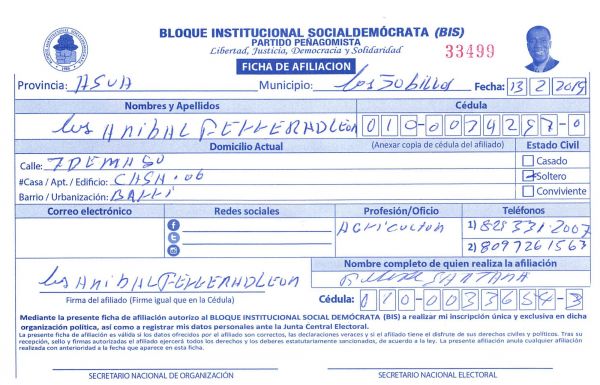 BLOQUE INSTITUCIONAL SOCIALDEMÓCRATA (BIS)
PARTIDO PEÑAGOMISTA
Libertad, Justicia, Democracia y Solidaridad
33499
FICHA DE AFILIACION
Provincia: ASUA Municipio: Los Jobillos Fecha: 13 2 2019
Nombres y Apellidos Cédula
Los ANIBAL FELLERADLEON 010-0074257-0
Domicilio Actual (Anexar copia de cédula del afiliado) Estado Civil
Calle: 7 DE MASO Casado
#Casa / Apt. / Edificio: CASA.06 Soltero
Barrio / Urbanización: Conviviente
Correo electrónico Redes sociales Profesión/Oficio Teléfonos
AGRICULTOR 1) 829 331.2007
2) 8097261567
Nombre completo de quien realiza la afiliación
Los ANIBAL FELLERADLEON SANTANA
Firma del afiliado (Firme igual que en la Cédula) Cédula: 010-0033654-3
Mediante la presente ficha de afiliación autorizo al BLOQUE INSTITUCIONAL SOCIAL DEMÓCRATA (BIS) a realizar mi inscripción única y exclusiva en dicha
organización política, así como a registrar mis datos personales ante la Junta Central Electoral.
La presente ficha de afiliación es válida si los datos ofrecidos por el afiliado son correctos, las declaraciones veraces y si el afiliado tiene el disfrute de sus derechos civiles y políticos. Tras su
recepción, sello y firmas autorizadas el afiliado ejercerá todos los derechos y los deberes estatutariamente sancionados, de acuerdo a la ley. La presente afiliación anula cualquier afiliación
realizada con anterioridad a la fecha que aparece en esta ficha.
SECRETARIO NACIONAL DE ORGANIZACIÓN SECRETARIO NACIONAL ELECTORAL